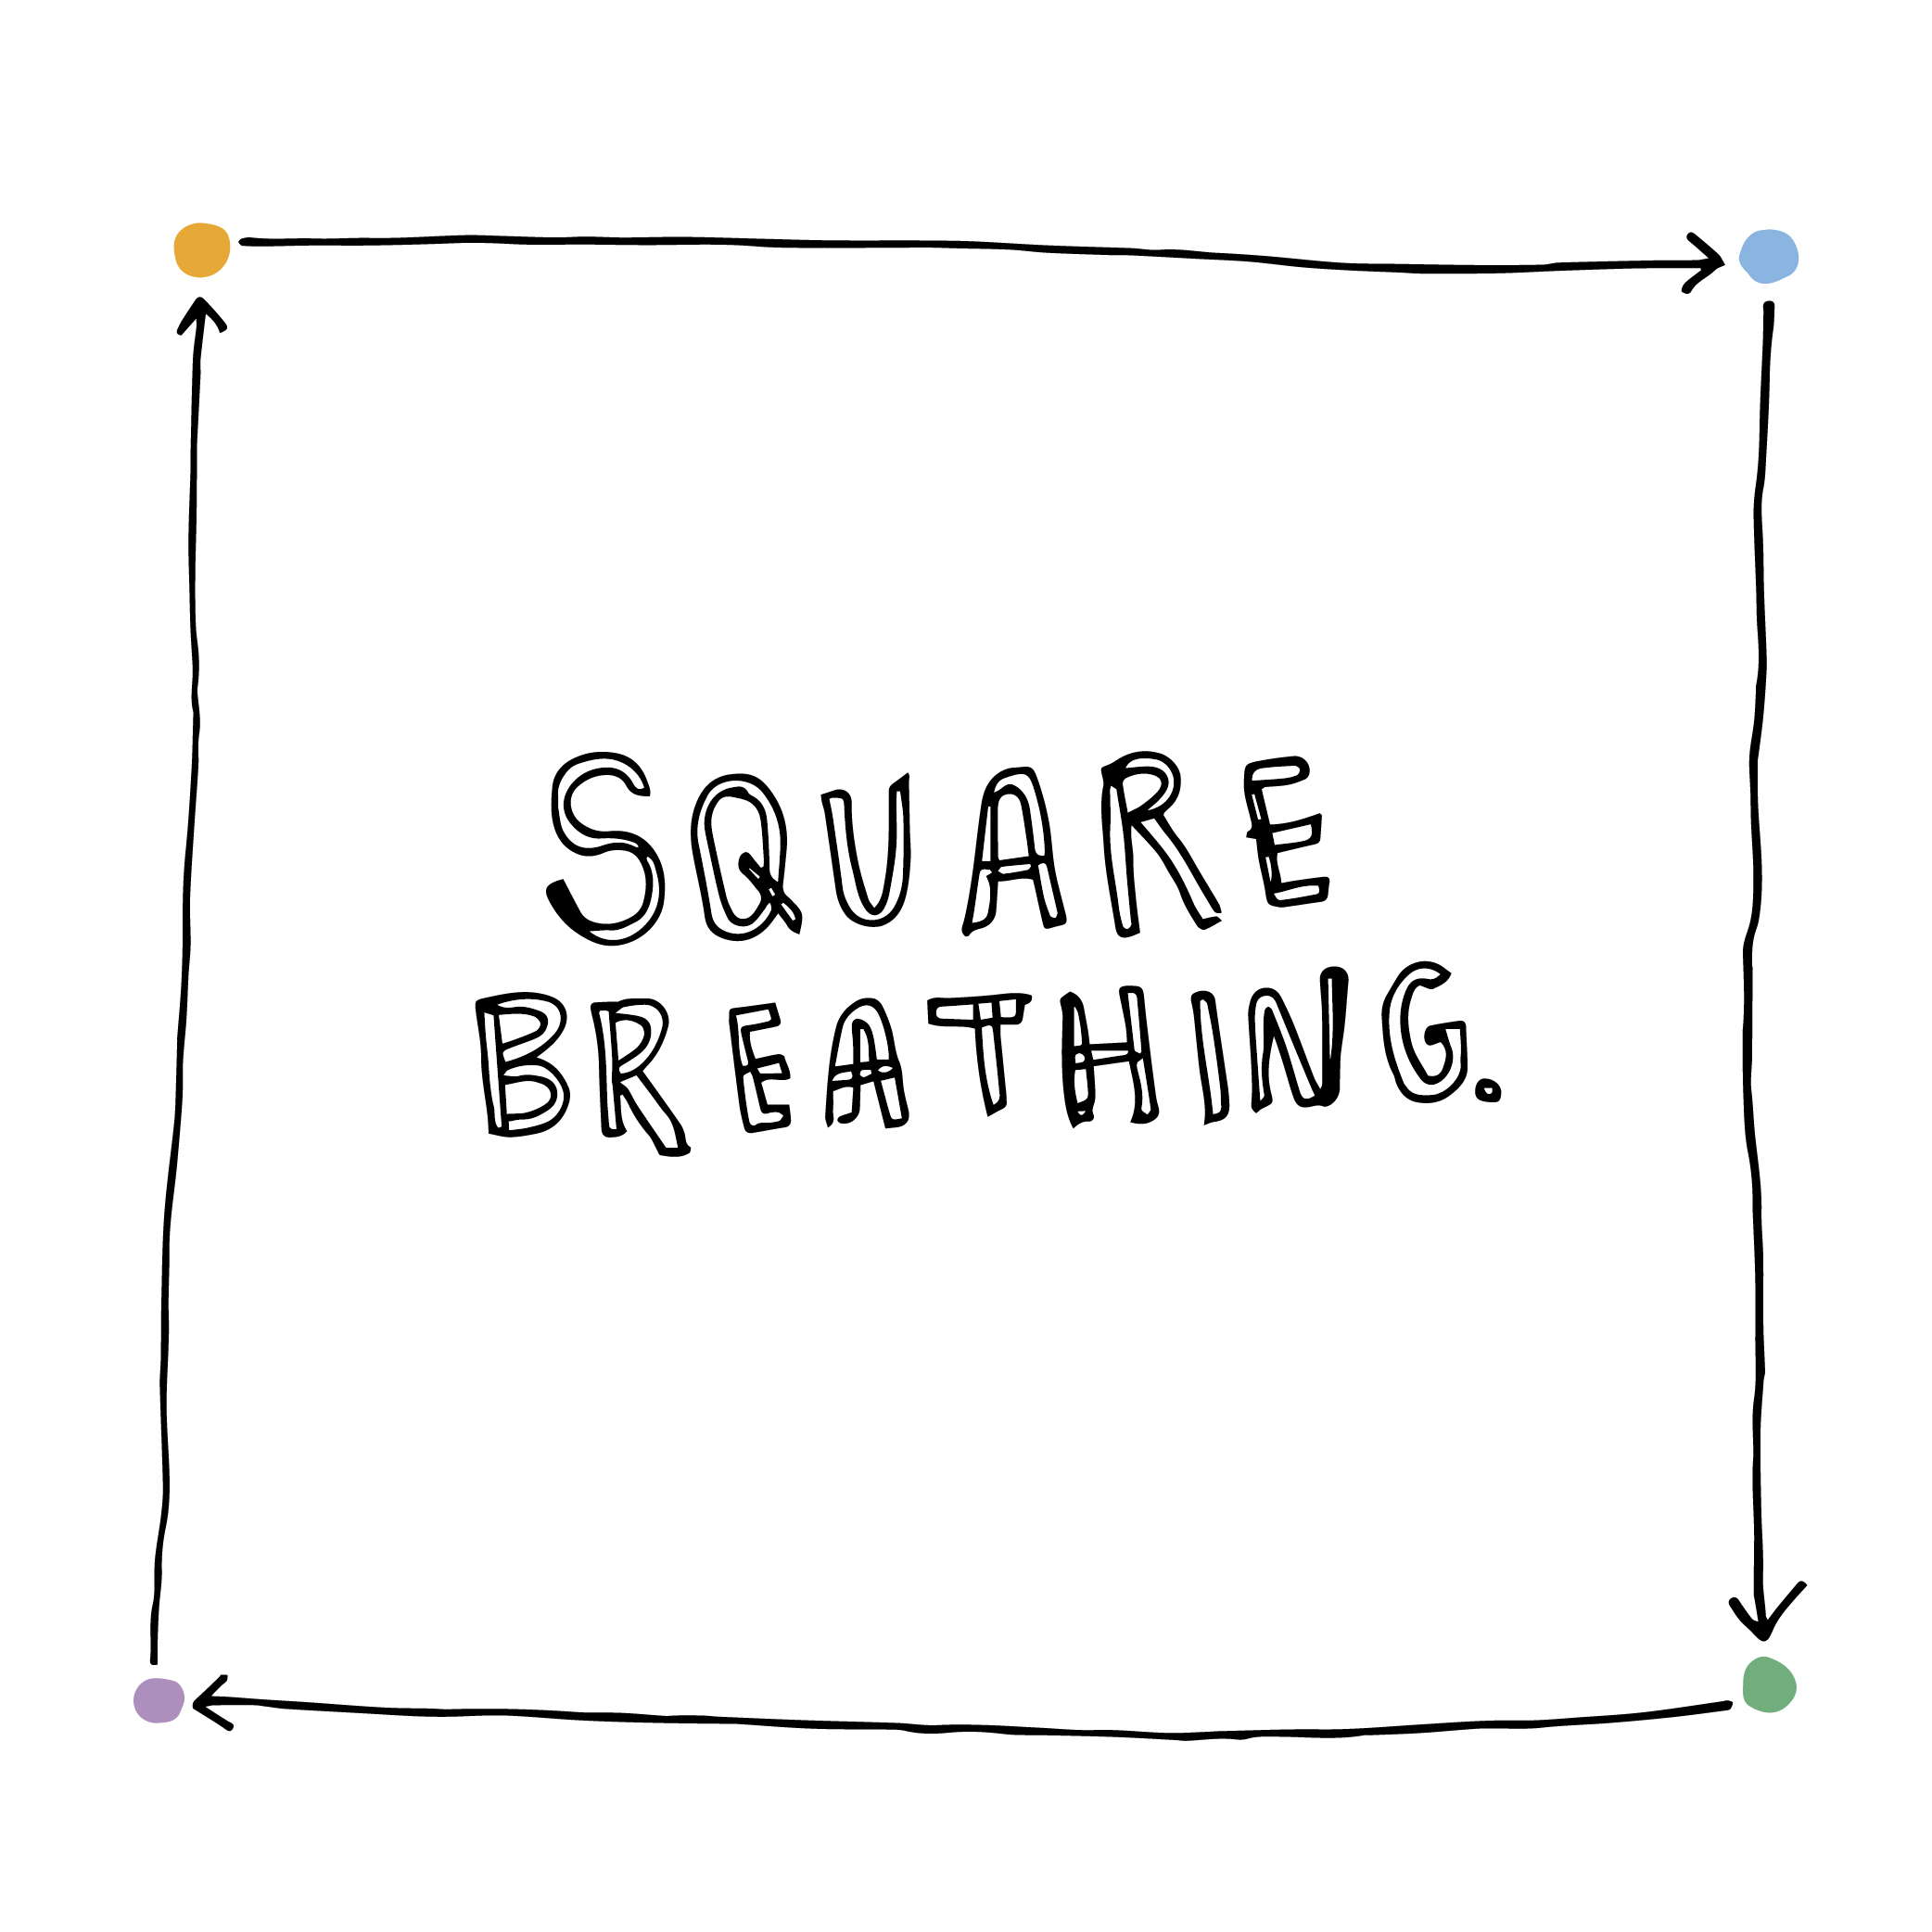 SQUARE
BREATHING.